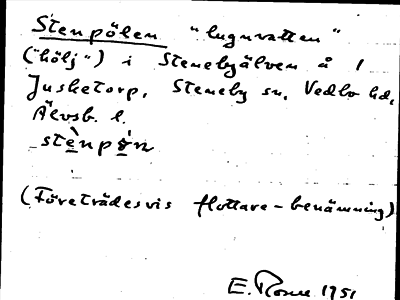 Stenpölen "lugnvatten"
("hölj") i Stenebyälven å /
Jusketorp, Steneby sn, Vedbo hd,
Älvsb. l.
stènpön
(Företrädesvis flottare-benämning)
E. 1951